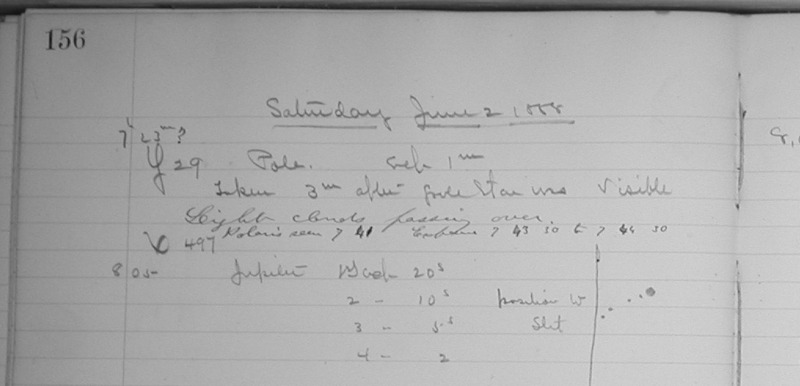 156
Saturday June 2, 1888
7h 23m?
Y 29 Pole. 1m
Taken 3m after pole star was visible
Light clouds passing over.
497 Polaris seen 7 41 Exposure 7 43 30 to 7 44 30
8 05 Jupiter 20s
2 - 10s position W
3 - 5s Slit
4 - 2
8,